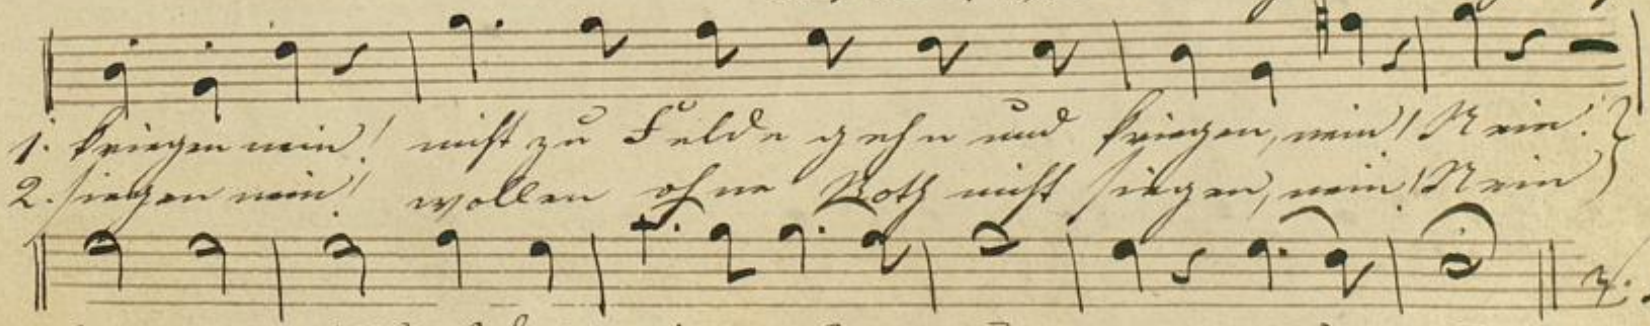 1. kriegen nein! nicht zu Felde gehn und kriegen, nein! Nein!
2. siegen nein! wollen ohne Noth nicht siegen, nein! Nein